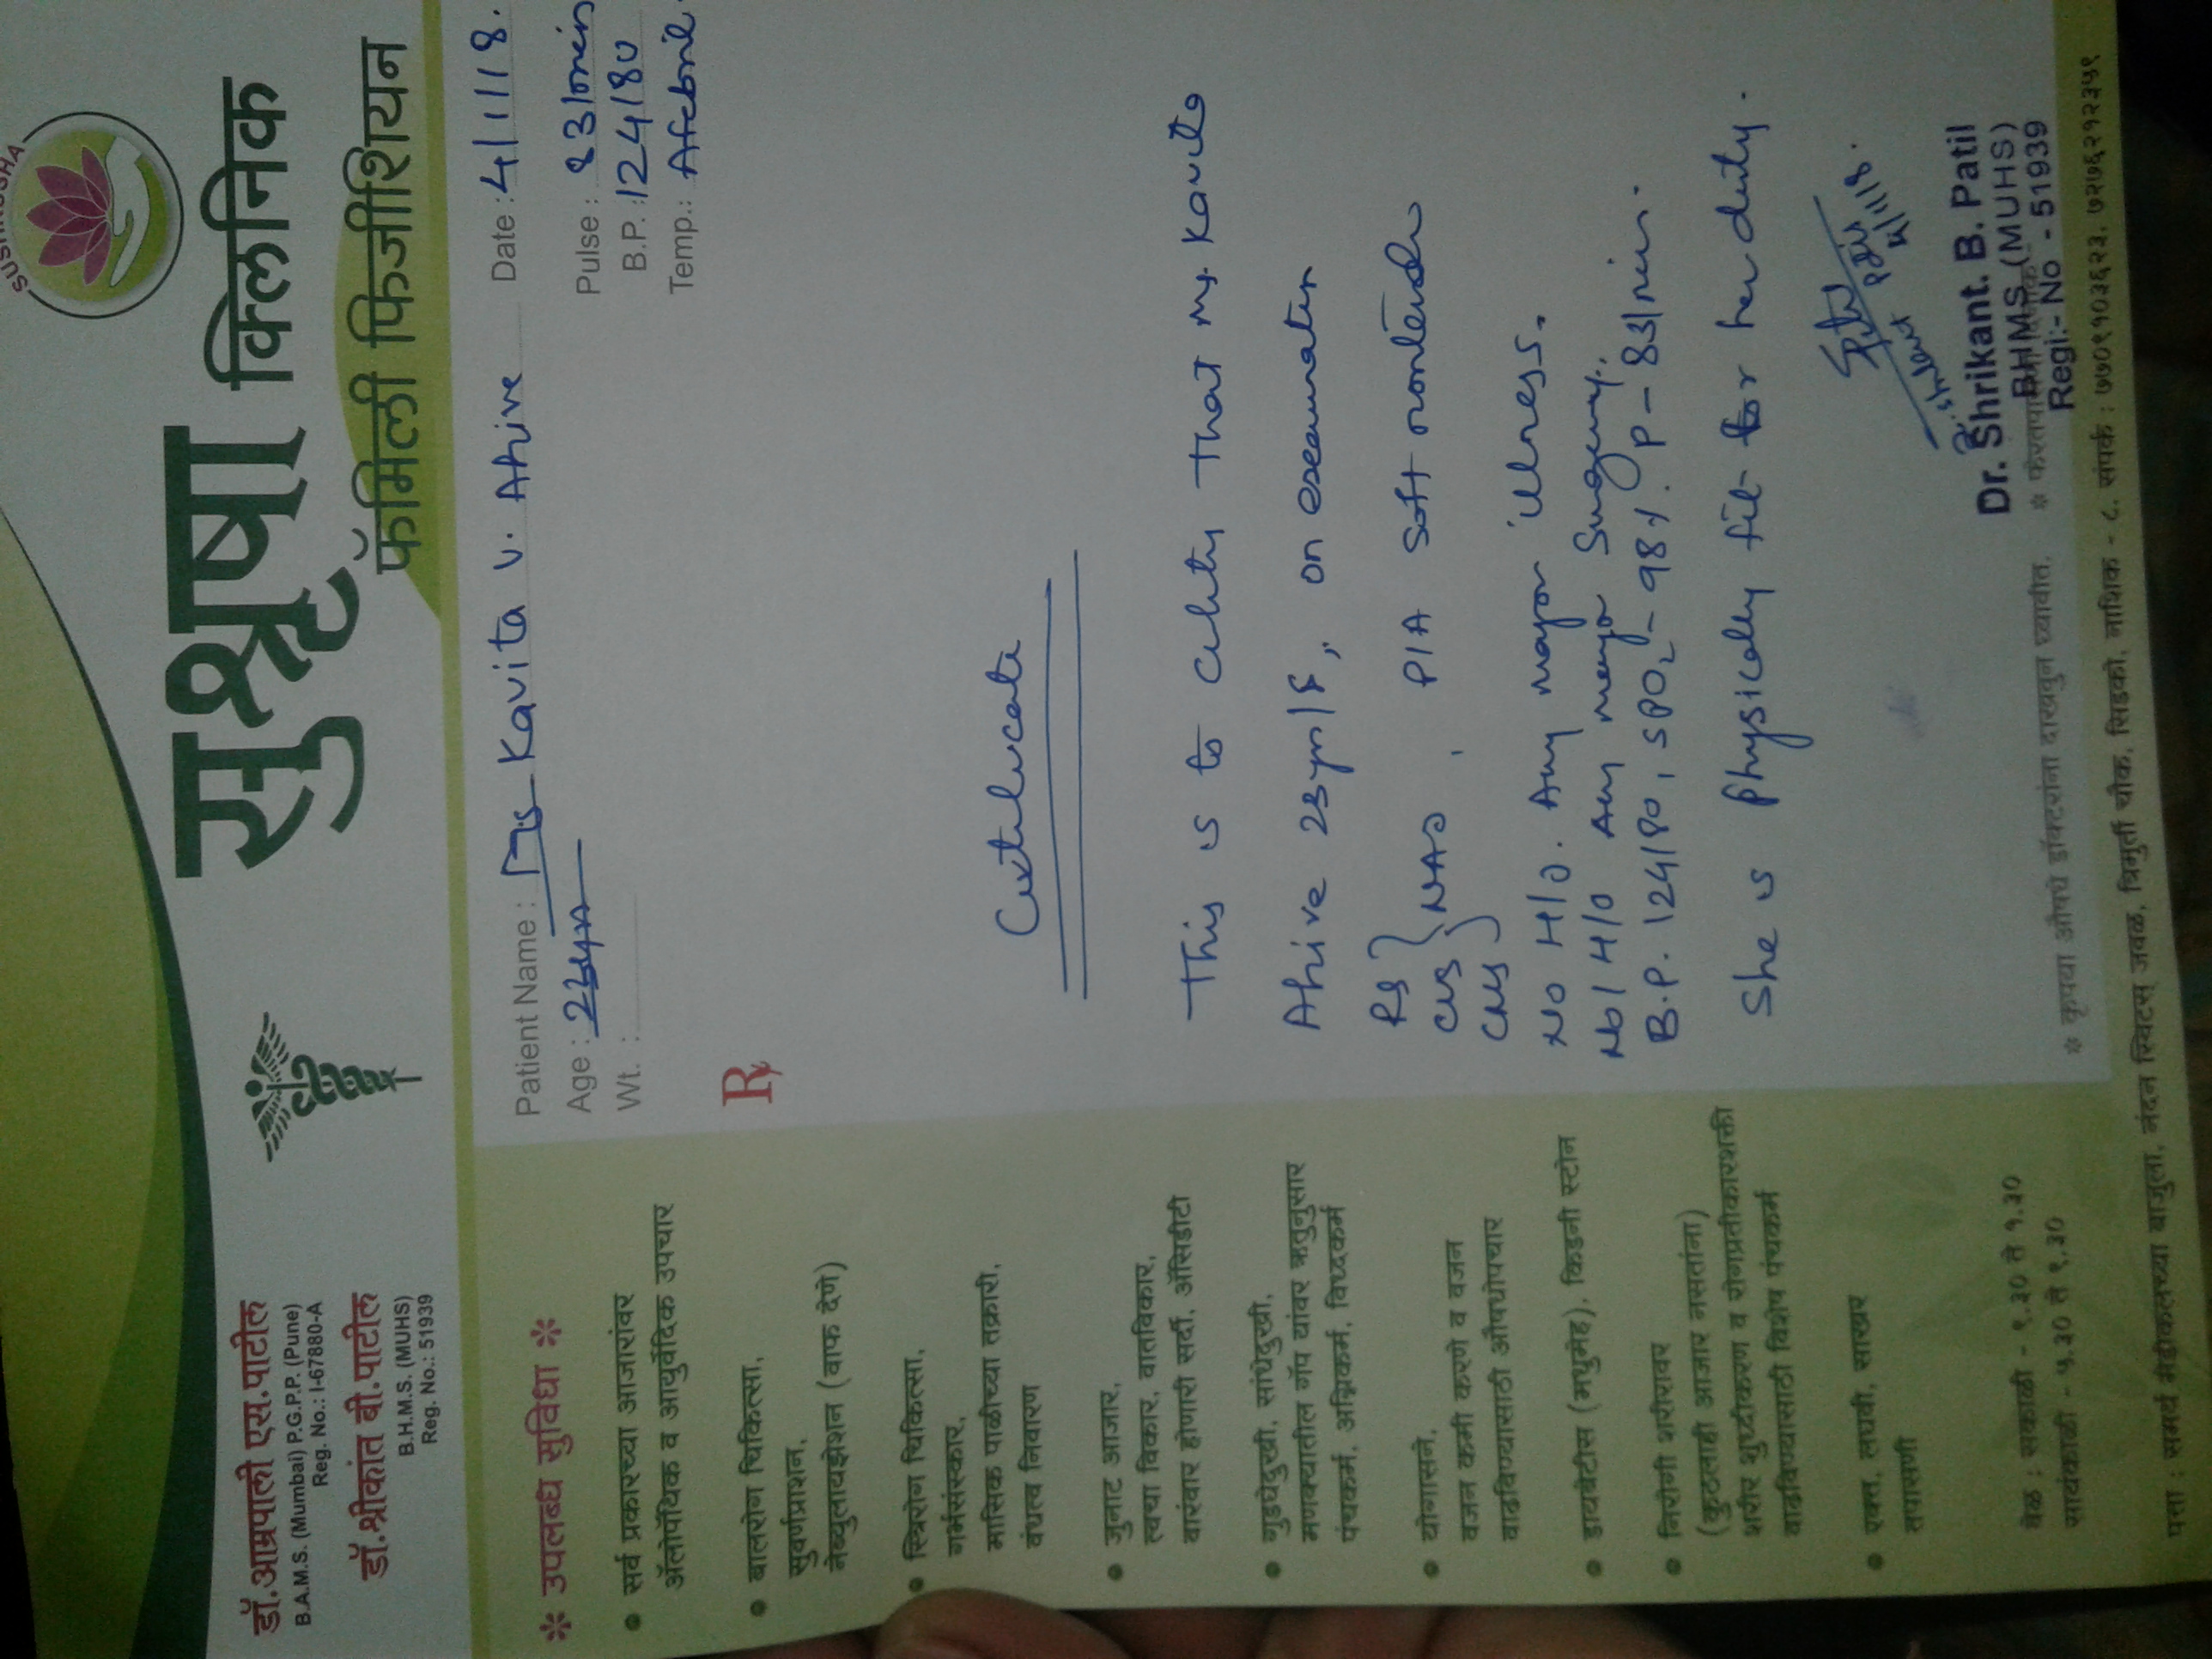 SUSHRUSHA
डॉ.आम्रपाली एस.पाटील
B.A.M.S. (Mumbai) P.G.P.P. (Pune)
Reg. No.: I-67880-A
डॉ.श्रीकांत बी.पाटील
B.H.M.S. (MUHS)
Reg. No.: 51939
सुश्रूषा क्लिनिक
फॅमिली फिजीशियन
Patient Name : Ms Kavita V. Ahire Date : 4/1/18.
Age : Pulse : 83/min
Wt. : B.P. : 124/80
Temp.: Afebrile
Rx
* उपलब्ध सुविधा *
• सर्व प्रकारच्या आजारांवर
ॲलोपॅथिक व आयुर्वेदिक उपचार
• बालरोग चिकित्सा,
सुवर्णप्राशन,
नेब्युलायझेशन (वाफ देणे)
• स्त्रिरोग चिकित्सा,
गर्भसंस्कार,
मासिक पाळीच्या तक्रारी,
वंधत्व निवारण
• जुनाट आजार,
त्वचा विकार, वातविकार,
वारंवार होणारी सर्दी, ॲसिडीटी
• गुडघेदुखी, सांधेदुखी,
मणक्यातील गॅप यांवर ऋतुनुसार
पंचकर्म, अग्निकर्म, विध्दकर्म
• योगासने,
वजन कमी करणे व वजन
वाढविण्यासाठी औषधोपचार
• डायबेटीस (मधुमेह), किडनी स्टोन
• निरोगी शरीरावर
(कुठलाही आजार नसतांना)
शरीर शुध्दीकरण व रोगप्रतीकारशक्ती
वाढविण्यासाठी विशेष पंचकर्म
• रक्त, लघवी, साखर
तपासणी
वेळ : सकाळी - ९.३० ते १.३०
सायंकाळी - ५.३० ते ९.३०
Certificate
This is to certify that Ms. Kavita
Ahire 23yrs/F, on examination
RS
CVS } NAD, P/A soft nontender
CNS
No H/O. Any major illness.
No/ H/O Any major Surgery.
B.P. 124/80, SPO2 - 98%. P - 83/min.
She is physically fit for her duty.
4/1/18.
Dr. Shrikant. B. Patil
BHMS (MUHS)
Regi:- No - 51939
* कृपया औषधे डॉक्टरांना दाखवुन घ्यावीत.
पत्ता : समर्थ मेडीकलच्या बाजुला, नंदन स्विटस् जवळ, त्रिमुर्ती चौक, सिडको, नाशिक - ८. संपर्क : ७७०९१०३६२३, ७२७६२१२३५९